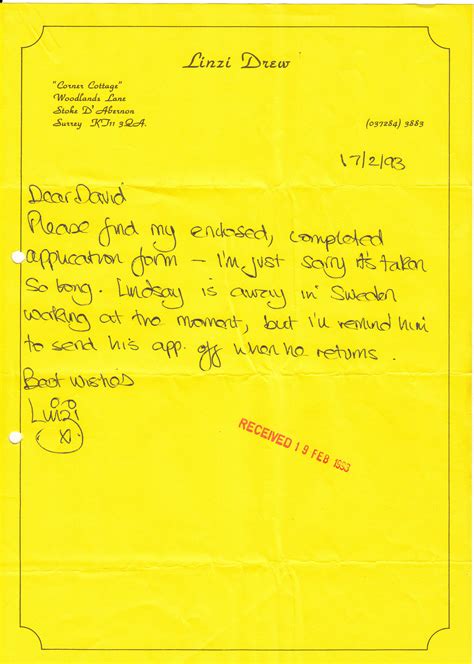 Linzi Drew
"Corner Cottage"
Woodlands Lane
Stoke D'Abernon
Surrey KT11 3QA.
(037284) 3883
17/2/93
Dear David
Please find my enclosed, completed
application form – I'm just sorry it's taken
so long. Lindsay is away in Sweden
working at the moment, but i'll remind him
to send his app. off when he returns.
Best wishes
Linzi
X
RECEIVED 19 FEB 1993